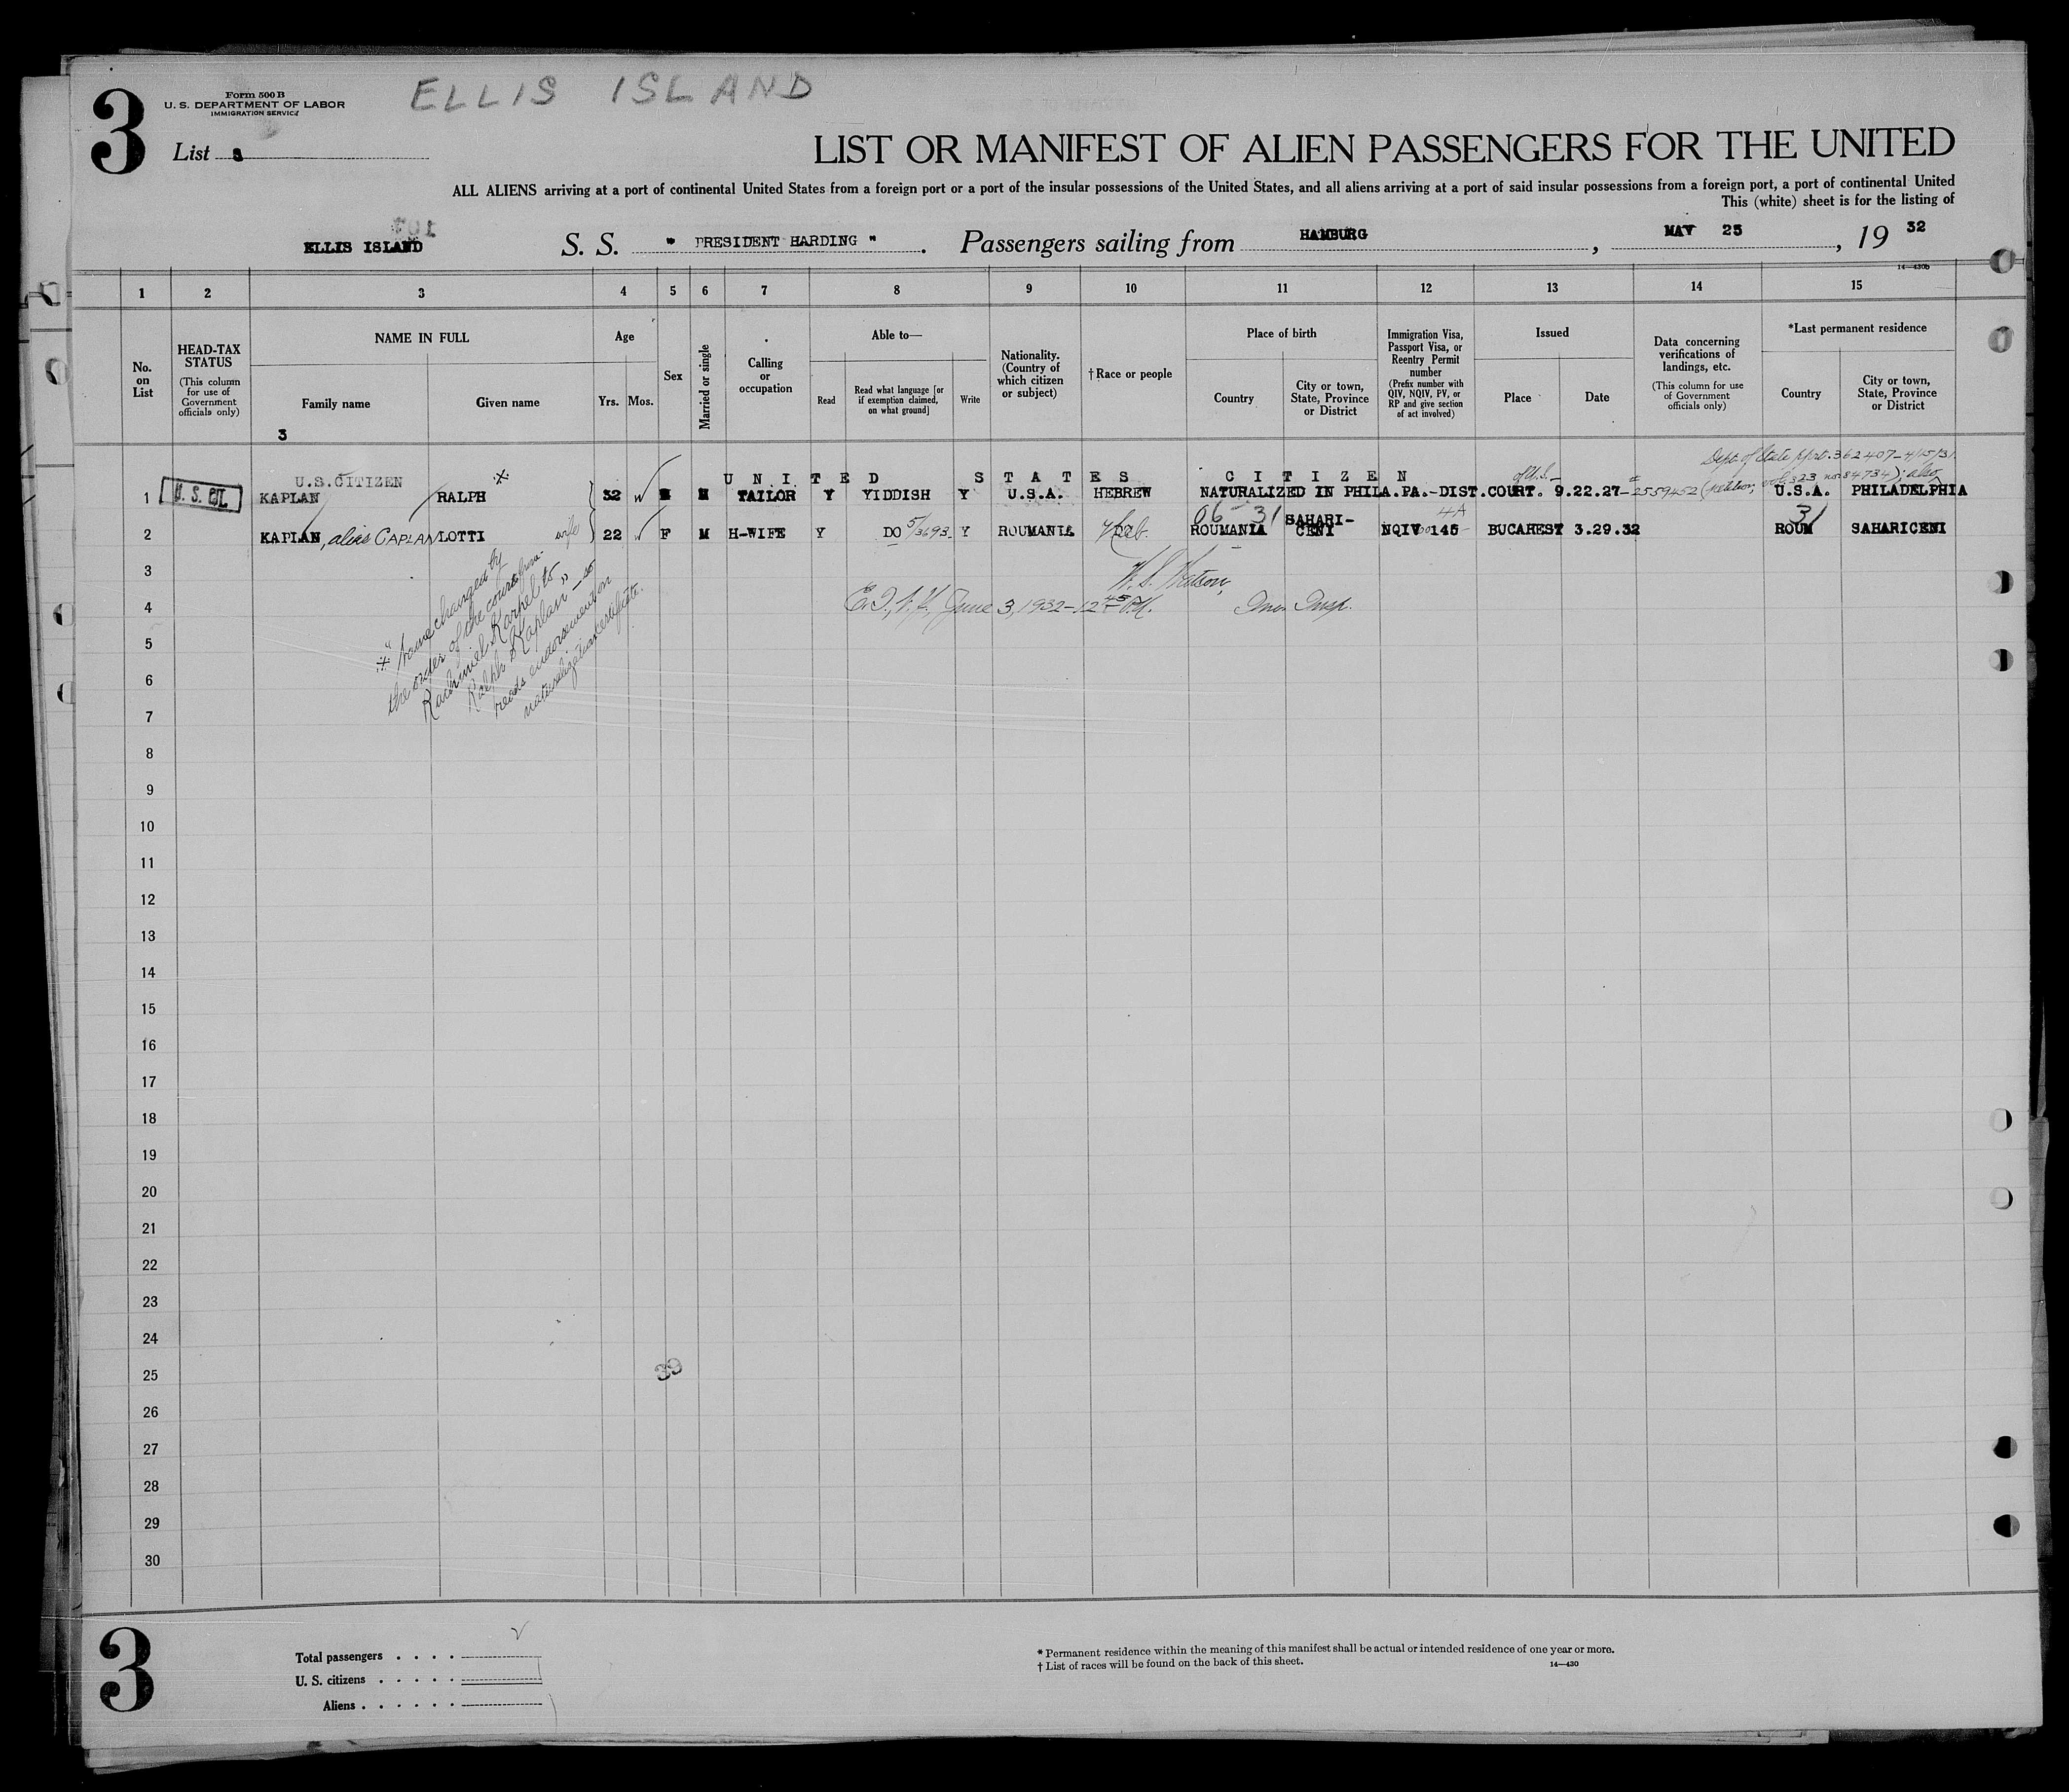 3
Form 500 B
U. S. DEPARTMENT OF LABOR
IMMIGRATION SERVICE
ELLIS ISLAND
List 3
LIST OR MANIFEST OF ALIEN PASSENGERS FOR THE UNITED
ALL ALIENS arriving at a port of continental United States from a foreign port or a port of the insular possessions of the United States, and all aliens arriving at a port of said insular possessions from a foreign port, a port of continental United
This (white) sheet is for the listing of
ELLIS ISLAND S. S. " PRESIDENT HARDING ". Passengers sailing from HAMBURG, MAY 25, 19 32
14—430b
1 2 3 4 5 6 7 8 9 10 11 12 13 14 15
No. on List
HEAD-TAX STATUS
(This column for use of Government officials only)
NAME IN FULL
Family name
Given name
3
Age
Yrs. Mos.
Sex
Married or single
Calling or occupation
Able to—
Read
Read what language [or if exemption claimed, on what ground]
Write
Nationality. (Country of which citizen or subject)
†Race or people
Place of birth
Country
City or town, State, Province or District
Immigration Visa, Passport Visa, or Reentry Permit number
(Prefix number with QIV, NQIV, PV, or RP and give section of act involved)
Issued
Place
Date
Data concerning verifications of landings, etc.
(This column for use of Government officials only)
*Last permanent residence
Country
City or town, State, Province or District
Dept. of State pprt. 362407-4/15/31
U.S.CITIZEN * UNITED STATES CITIZEN of U.S.—
1 U. S. CIT. KAPLAN RALPH 32 M TAILOR Y YIDDISH Y U.S.A. HEBREW NATURALIZED IN PHILA.PA.-DIST.COURT. 9.22.27- #2559452 (petition, vol. 323 no. 84734); also U.S.A. PHILADELPHIA
06 31 4A 31
2 KAPLAN, alias CAPLAN LOTTI wife 22 F M H-WIFE Y DO 5/3693 Y ROUMANIA Heb. ROUMANIA SAHARI-CENI NQIV 145 BUCAREST 3.29.32 ROUM SAHARICENI
3
W. S. Watson,
4 E.I., N.Y., June 3, 1932-12 45 P.M. Imm. Insp.
* "Name changed by
the order of the court from
Rachmiel Karpel to
Ralph Kaplan" — so
reads endorsement on
naturalization certificate.
5
6
7
8
9
10
11
12
13
14
15
16
17
18
19
20
21
22
23
24
25 39
26
27
28
29
30
3
Total passengers
U. S. citizens
Aliens
* Permanent residence within the meaning of this manifest shall be actual or intended residence of one year or more.
† List of races will be found on the back of this sheet.
14—430